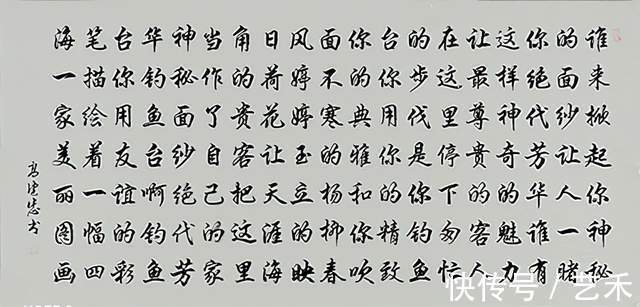 谁来掀起你神秘
的面纱让人一睹
你绝代芳华谁有
这样神奇的魅力
让最尊贵的客人
在这里停下匆忙
的步伐是你钓鱼
台你用你的精致
你的典雅和你吹
面不寒的杨柳春
风婷婷玉立的映
日荷花让天涯海
角的贵客把这里
当作了自己的家
神秘面纱绝代芳
华钓鱼台啊钓鱼
台你用友谊的彩
笔描绘着一幅四
海一家美丽图画
书
快传号/艺禾